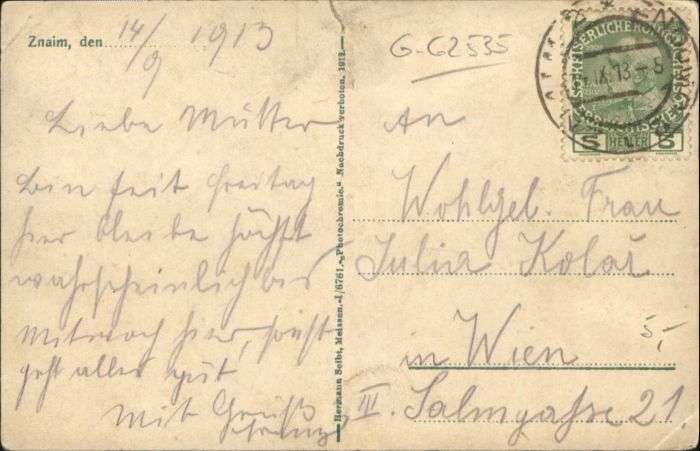 Znaim, den 14/9 1913
Liebe Mutter
bin seit Freitag
hier bleibe höchst
wahrscheinlich bis
Mittwoch hier, sonst
geht alles gut
Mit Gruß
Hermann Seibt, Meissen.-1/6761.-"Photochromie." Nachdruck verboten. 1912.
G-62535
An
Wohlgeb. Frau
Julia Kolař
in Wien
III. Salmgasse 21
5,-
5 HELLER 5